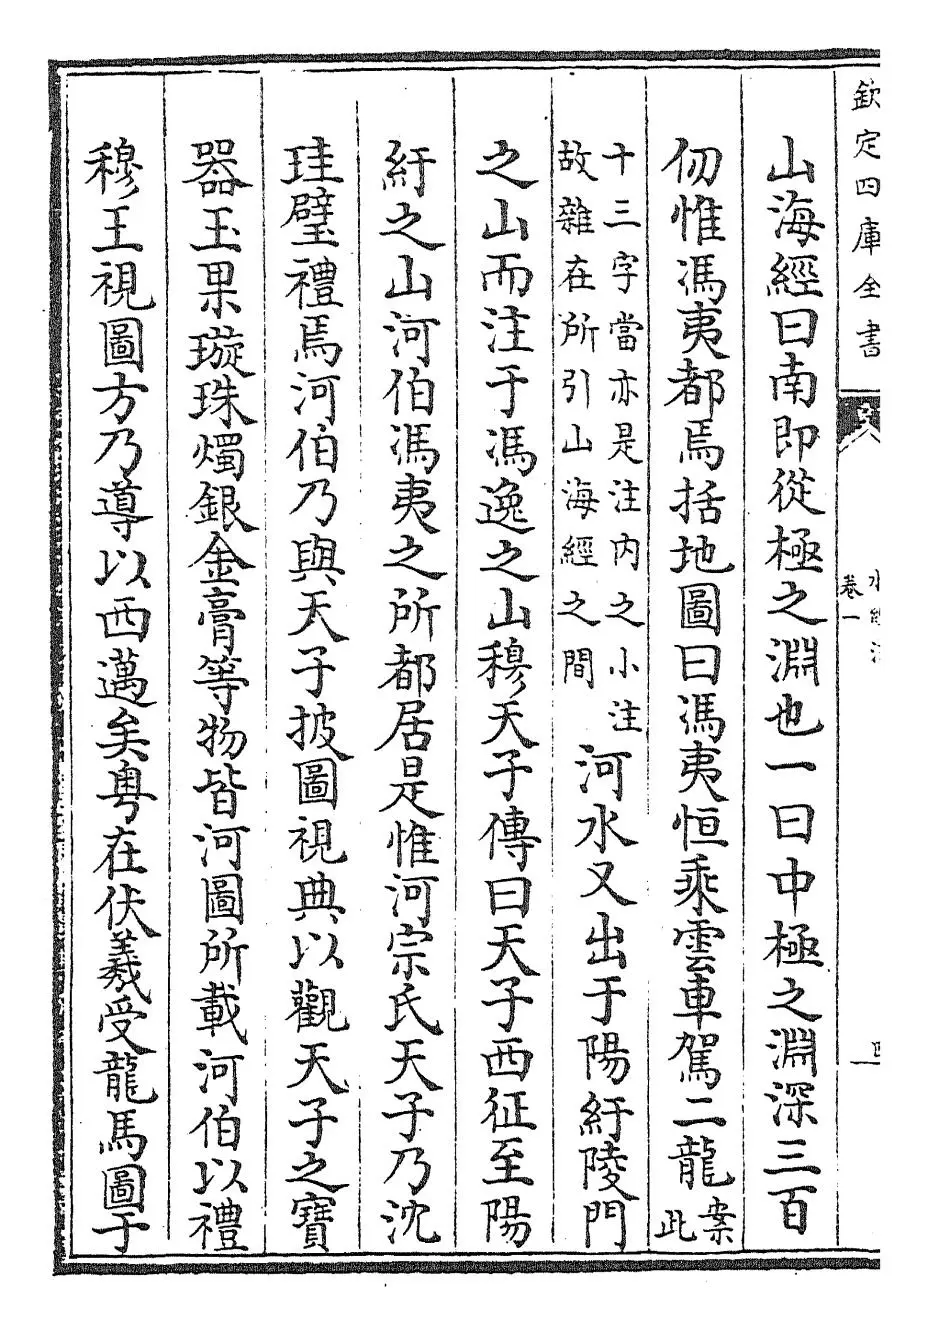 欽定四庫全書
卷一
山海經曰南即從極之淵也一曰中極之淵深三百
仞惟馮夷都焉括地圖曰馮夷恒乘雲車駕二龍案此
十三字當亦是注內之小注故雜在所引山海經之間河水又出于陽紆陵門
之山而注于馮逸之山穆天子傳曰天子西征至陽
紆之山河伯馮夷之所都居是惟河宗氏天子乃沈
珪璧禮焉河伯乃與天子披圖視典以觀天子之寶
器玉果璇珠燭銀金膏等物皆河圖所載河伯以禮
穆王視圖方乃導以西邁矣粵在伏羲受龍馬圖于